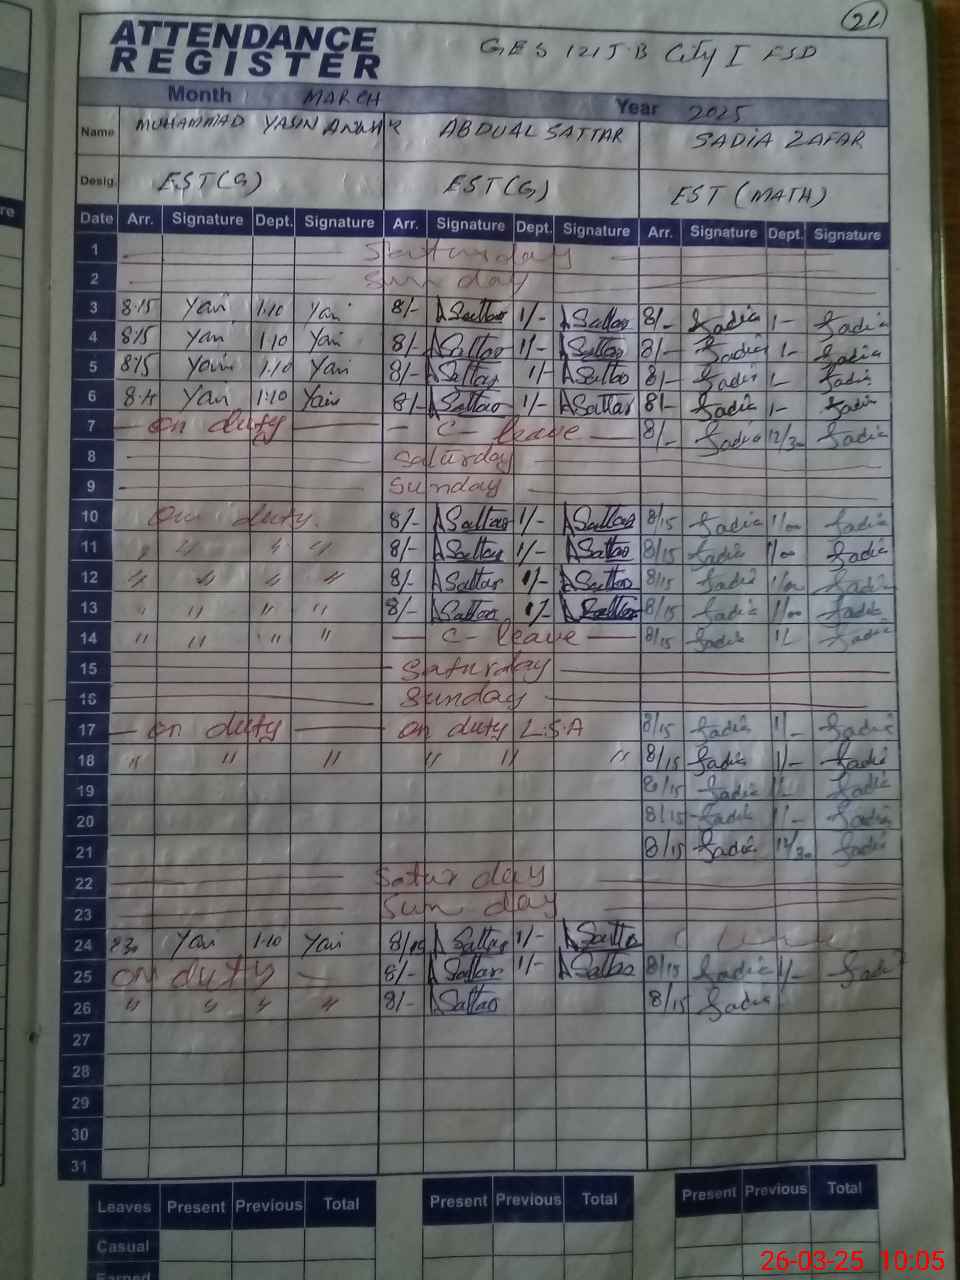 21
ATTENDANCE REGISTER
GES 121 J.B City I FSD
Month MARCH Year 2025
Name MUHAMMAD YASIN ANWAR ABDUAL SATTAR SADIA ZAFAR
Desig. EST(G) EST(G) EST (MATH)
Date Arr. Signature Dept. Signature Arr. Signature Dept. Signature Arr. Signature Dept. Signature
1 Saturday
2 Sunday
3 8.15 Yasin 1.10 Yasin 8/- A Sattar 1/- A Sattar 8/- Sadia 1- Sadia
4 815 Yasin 1.10 Yasin 8/- A Sattar 1/- A Sattar 8/- Sadia 1- Sadia
5 815 Yasin 1.10 Yasin 8/- A Sattar 1/- A Sattar 8/- Sadia 1- Sadia
6 Yasin 1.10 Yasin 8/- A Sattar 1/- A Sattar 8/- Sadia 1- Sadia
7 on duty C- leave 8/- Sadia 12/30 Sadia
8 Saturday
9 Sunday
10 on duty. 8/- A Sattar 1/- A Sattar 8/15 Sadia 1/00 Sadia
11 " " " " 8/- A Sattar 1/- A Sattar 8/15 Sadia 1/00 Sadia
12 " " " " 8/- A Sattar 1/- A Sattar 8/15 Sadia 1/00 Sadia
13 " " " " 8/- A Sattar 1/- A Sattar 8/15 Sadia 1/00 Sadia
14 " " " " C- leave 8/15 Sadia Sadia
15 Saturday
16 Sunday
17 on duty on duty L.S.A 8/15 Sadia 1/- Sadia
18 " " " " " " 8/15 Sadia 1/- Sadia
19 8/15 Sadia Sadia
20 8/15 Sadia 1/- Sadia
21 8/15 Sadia 12/30 Sadia
22 Saturday
23 Sunday
24 830 Yasin 1.10 Yasin 8/15 A Sattar 1/- A Sattar C leave
25 on duty 8/- A Sattar 1/- A Sattar 8/15 Sadia 1/- Sadia
26 " " " " 8/- A Sattar 8/15 Sadia
27
28
29
30
31
Leaves Present Previous Total Present Previous Total Present Previous Total
Casual
Earned
26-03-25 10:05